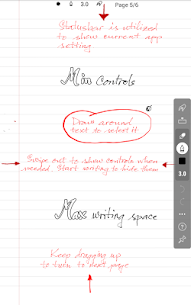 3.0
Page 5/6
Statusbar is utilized
to show current app
setting.
Min controls
Draw around
text to select it
Swipe out to show controls when
needed. Start writing to hide them
3.0
Max writing space
Keep dragging up
to turn to next page